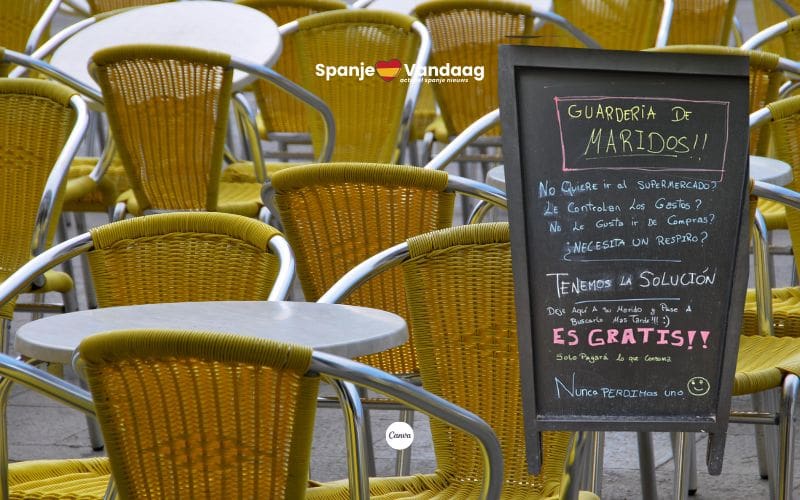 Spanje Vandaag
actueel spanje nieuws
GUARDERIA DE
MARIDOS!!
No Quiere ir al SUPERMERCADO?
Le Controlan Los Gastos?
No Le Gusta ir De Compras?
¿NECESITA UN RESPIRO?
TENEMOS LA SOLUCIÓN
DEJE AQUI A Su Marido y PASE A
Buscarlo Mas Tarde!!! :)
ES GRATIS!!
Solo Pagará lo que Consuma
Nunca PERDIMOS uno
Canva